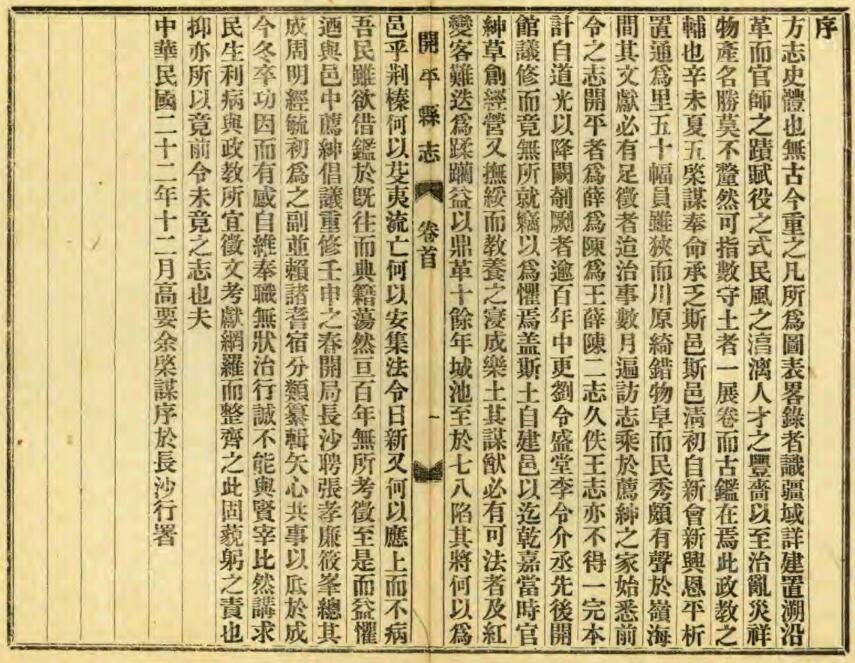 序
方志史體也無古今重之凡所爲圖表畧錄者識疆域詳建置溯沿
革而官師之蹟賦役之式民風之淳漓人才之豐嗇以至治亂災祥
物產名勝莫不釐然可指數守土者一展卷而古鑑在焉此政教之
輔也辛未夏五棨謀奉命承乏斯邑斯邑淸初自新會新興恩平析
置通爲里五十幅員雖狹而川原綺錯物阜而民秀頗有聲於嶺海
間其文獻必有足徵者迨治事數月遍訪志乘於薦紳之家始悉前
令之志開平者爲薛爲陳爲王薛陳二志久佚王志亦不得一完本
計自道光以降闕剞劂者逾百年中更劉令盛堂李令介丞先後開
館議修而竟無所就竊以爲懼焉蓋斯土自建邑以迄乾嘉當時官
紳草創經營又撫綏而教養之寖成樂土其謀猷必有可法者及紅
變客難迭爲蹂躪益以鼎革十餘年城池至於七八陷其將何以爲
開平縣志
卷首
一
邑乎荆榛何以芟夷流亡何以安集法令日新又何以應上而不病
吾民雖欲借鑑於旣往而典籍蕩然亘百年無所考徵至是而益懼
迺與邑中薦紳倡議重修壬申之春開局長沙聘張孝廉筱峯總其
成周明經毓初爲之副並賴諸耆宿分類纂輯矢心共事以底於成
今冬卒功因而有感自維奉職無狀治行誠不能與賢宰比然講求
民生利病與政教所宜徵文考獻網羅而整齊之此固藐躬之責也
抑亦所以竟前令未竟之志也夫
中華民國二十二年十二月高要余棨謀序於長沙行署